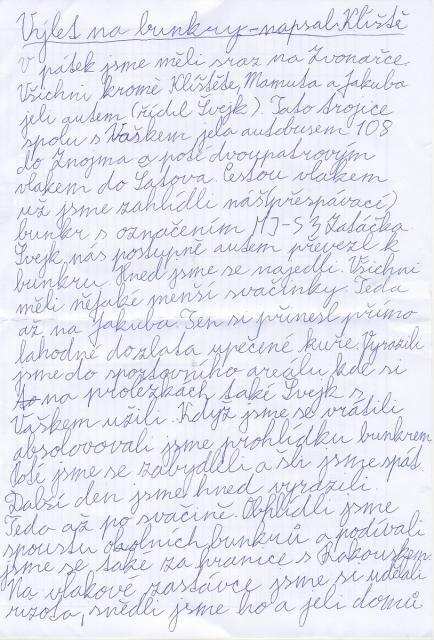 Výlet na bunkry – napsal Klíště
V pátek jsme měli sraz na Zvonařce.
Všichni kromě Klíštěte, Mamuta a Jakuba
jeli autem (řídil Švejk). Tato trojice
spolu s Vaškem jela autobusem 108
do Znojma a poté dvoupatrovým
vlakem do Šatova. Cestou vlakem
už jsme zahlídli náš (přespávací)
bunkr s označením MJ-S 3 Zatáčka.
Švejk nás postupně autem převezl k
bunkru. Hned jsme se najedli. Všichni
měli nějaké menší svačinky. Teda
až na Jakuba. Ten si přinesl přímo
lahodné dozlata upečené kuře. Vyrazili
jsme do sportovního areálu kde si
na prolézkách také Švejk s
Vaškem užili. Když jsme se vrátili
absolvovali jsme prohlídku bunkrem
Poté jsme se zabydleli a šli jsme spát.
Další den jsme hned vyrazili.
Teda až po svačině. Obhlídli jsme
spoustu okolních bunkrů a podívali
jsme se také za hranice s Rakouskem.
Na vlakové zastávce jsme si udělali
rizota, snědli jsme ho a jeli domů